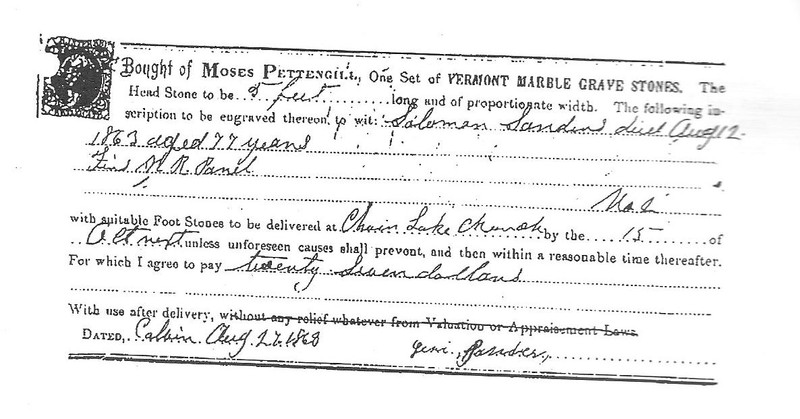 Bought of MOSES PETTENGILL, One Set of VERMONT MARBLE GRAVE STONES. The
Head Stone to be 5 feet long and of proportionate width. The following in-
scription to be engraved thereon, to wit: Soloman Sanders died Aug 12
1863 aged 77 years
Panel
with suitable Foot Stones to be delivered at Chain Lake Church by the 15 of
Oct next unless unforeseen causes shall prevent, and then within a reasonable time thereafter.
For which I agree to pay twenty Seven dollars
With use after delivery, without any relief whatever from Valuation or Appraisement Laws
DATED, Calvin Aug 27 1863 Sanders